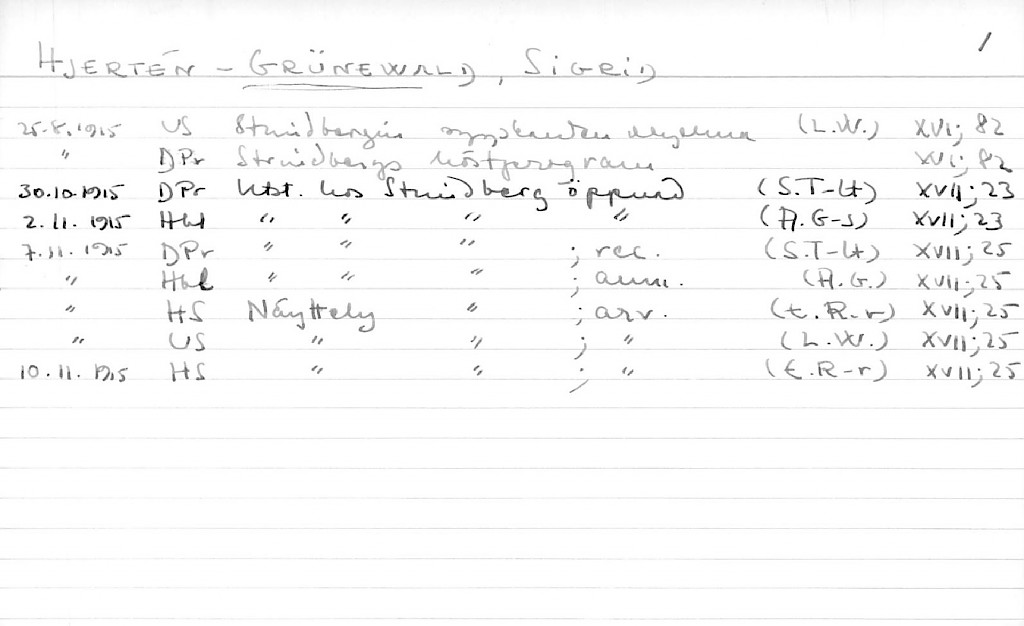 1
HJERTÉN - GRÜNEWALD, SIGRID
25.8.1915 US Strindbergin syyskauden (L.W.) XVI; 82
" DPr Strindbergs höstprogram XVI; 82
30.10.1915 DPr Utst. hos Strindberg öppnad (S.T-lt) XVII; 23
2.11.1915 Hbl " " " " (A.G-s) XVII; 23
7.11.1915 DPr " " " ; rec. (S.T-lt) XVII; 25
" Hbl " " " ; anm. (A.G.) XVII; 25
" HS Näyttely " ; arv. (E.R-r) XVII; 25
" US " " ; " (L.W.) XVII; 25
10.11.1915 HS " " ; " (E.R-r) XVII; 25